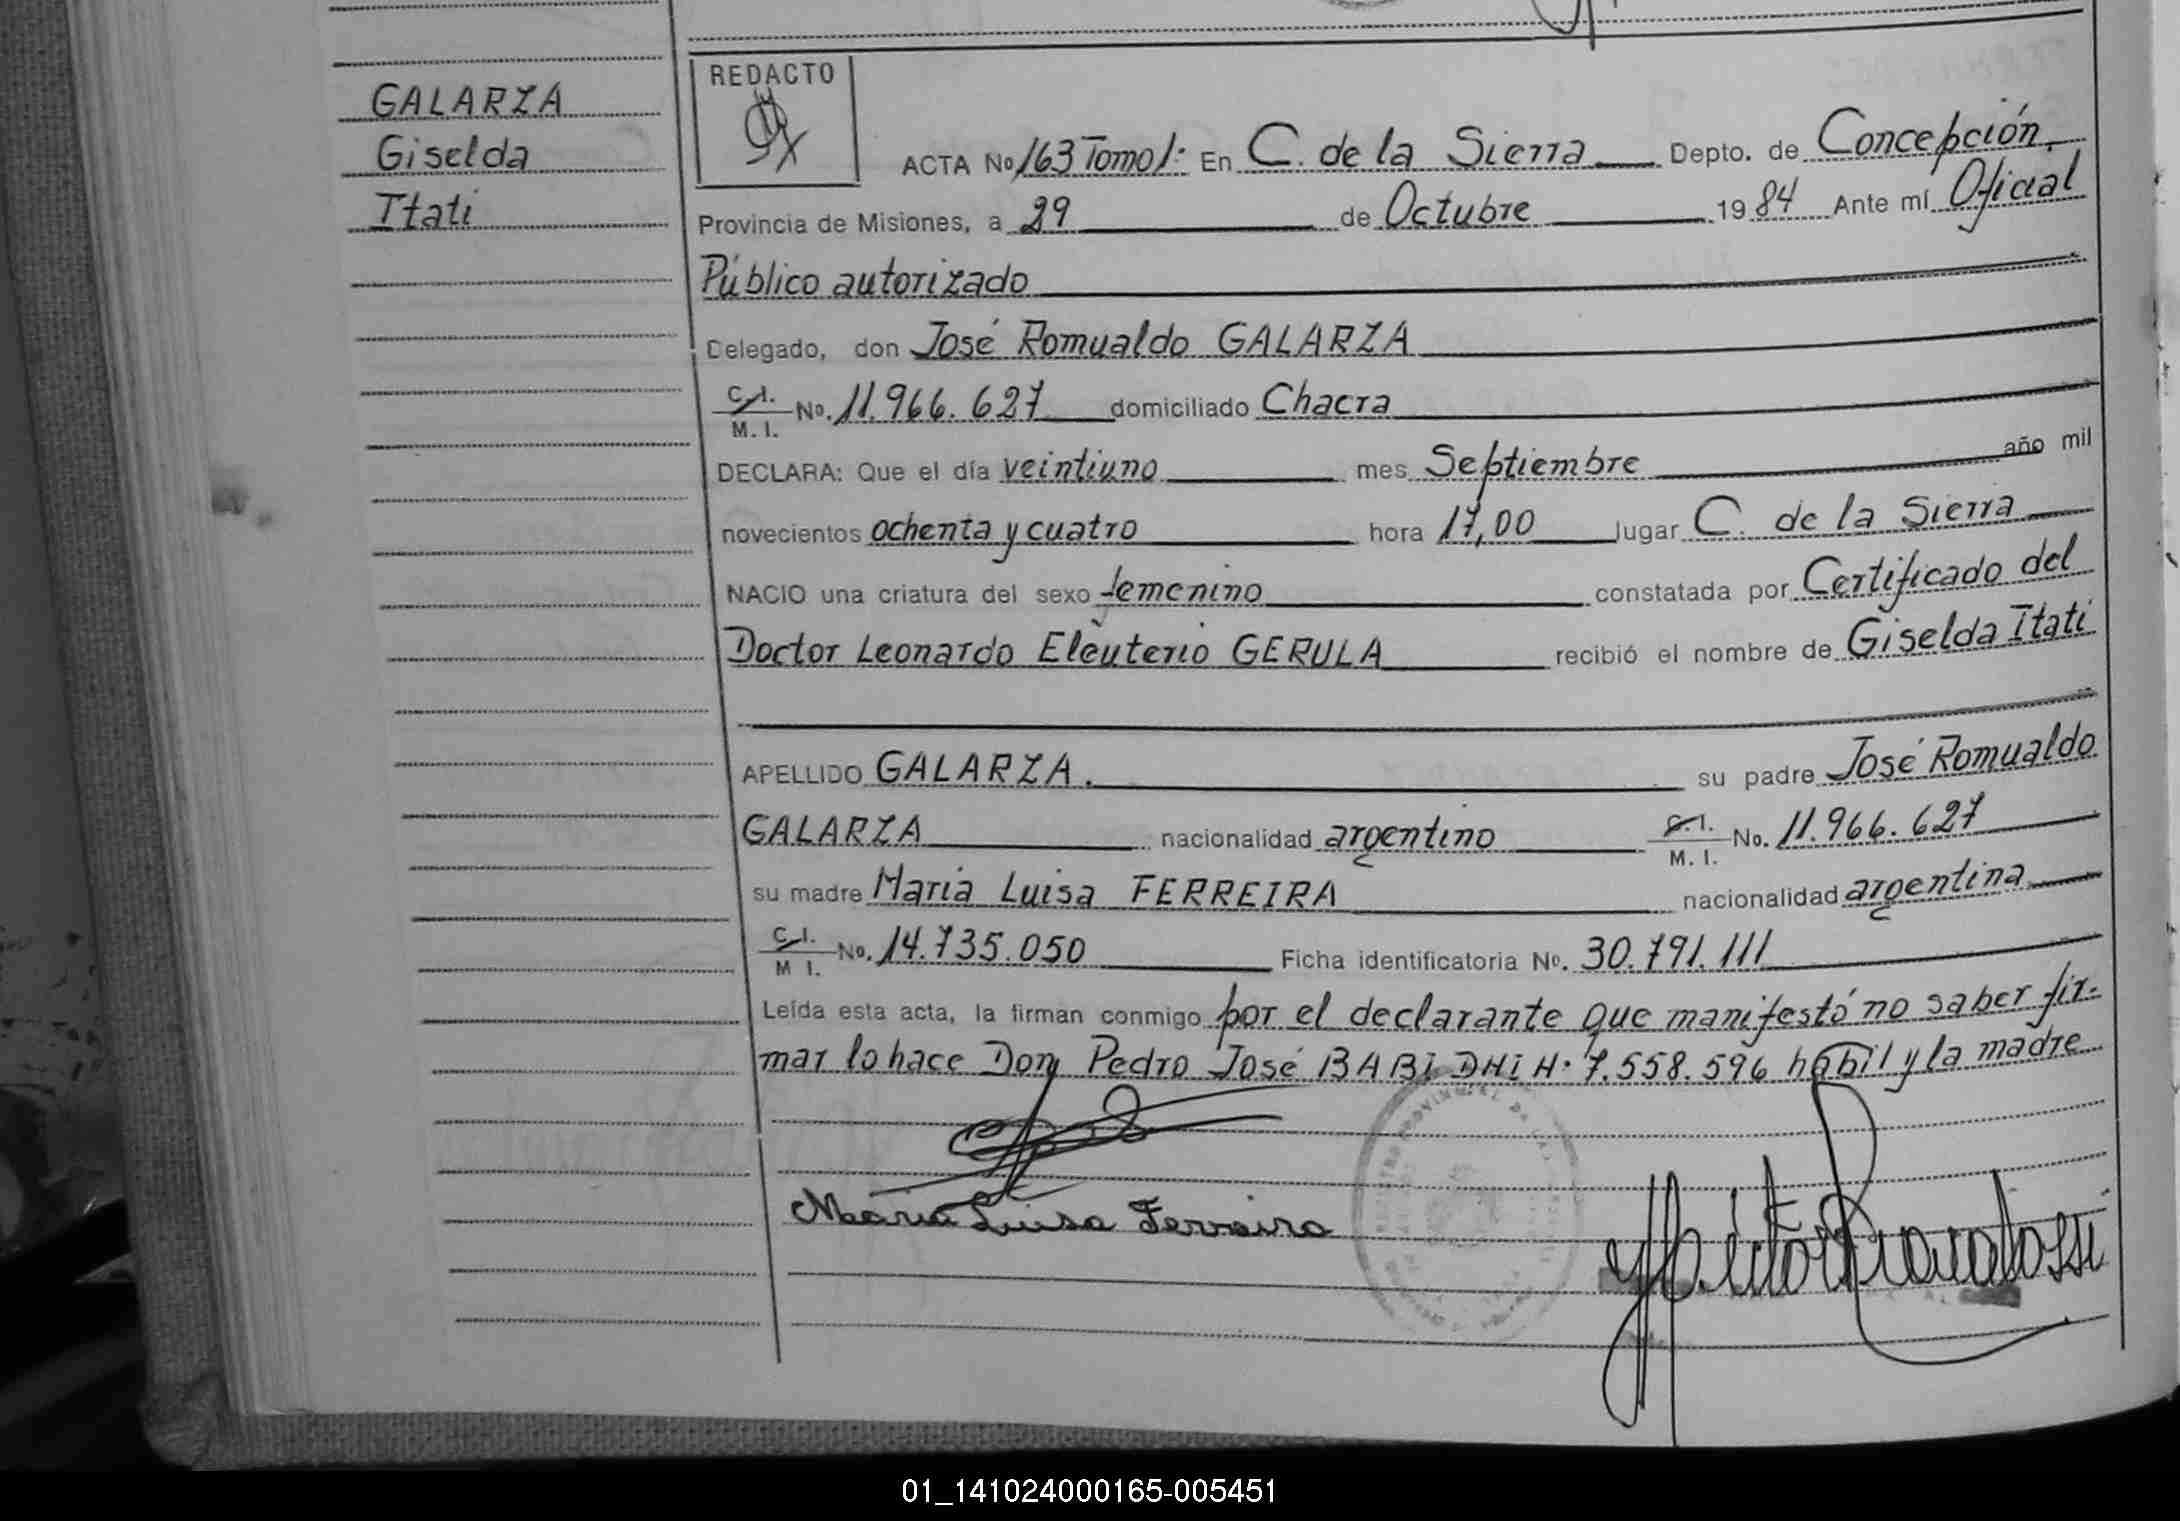 GALARZA
Giselda
Itati
REDACTO
ACTA No 163 Tomo 1: En C. de la Sierra Depto. de Concepción,
Provincia de Misiones, a 29 de Octubre 1984 Ante mí Oficial
Público autorizado
Delegado, don José Romualdo GALARZA
C.I. M. I. No. 11.966.627 domiciliado Chacra
DECLARA: Que el día veintiuno mes Septiembre año mil
novecientos ochenta y cuatro hora 17,00 lugar C. de la Sierra
NACIO una criatura del sexo femenino constatada por Certificado del
Doctor Leonardo Eleuterio GERULA recibió el nombre de Giselda Itati
APELLIDO GALARZA. su padre José Romualdo
GALARZA nacionalidad argentino C.I. M. I. No. 11.966.627
su madre Maria Luisa FERREIRA nacionalidad argentina
C.I. M I. No. 14.735.050 Ficha identificatoria No. 30.791.111
Leída esta acta, la firman conmigo por el declarante que manifestó no saber fir-
mar lo hace Don Pedro José BABI DNI N. 7.558.596 hábil y la madre
Maria Luisa Ferreira
01_141024000165-005451